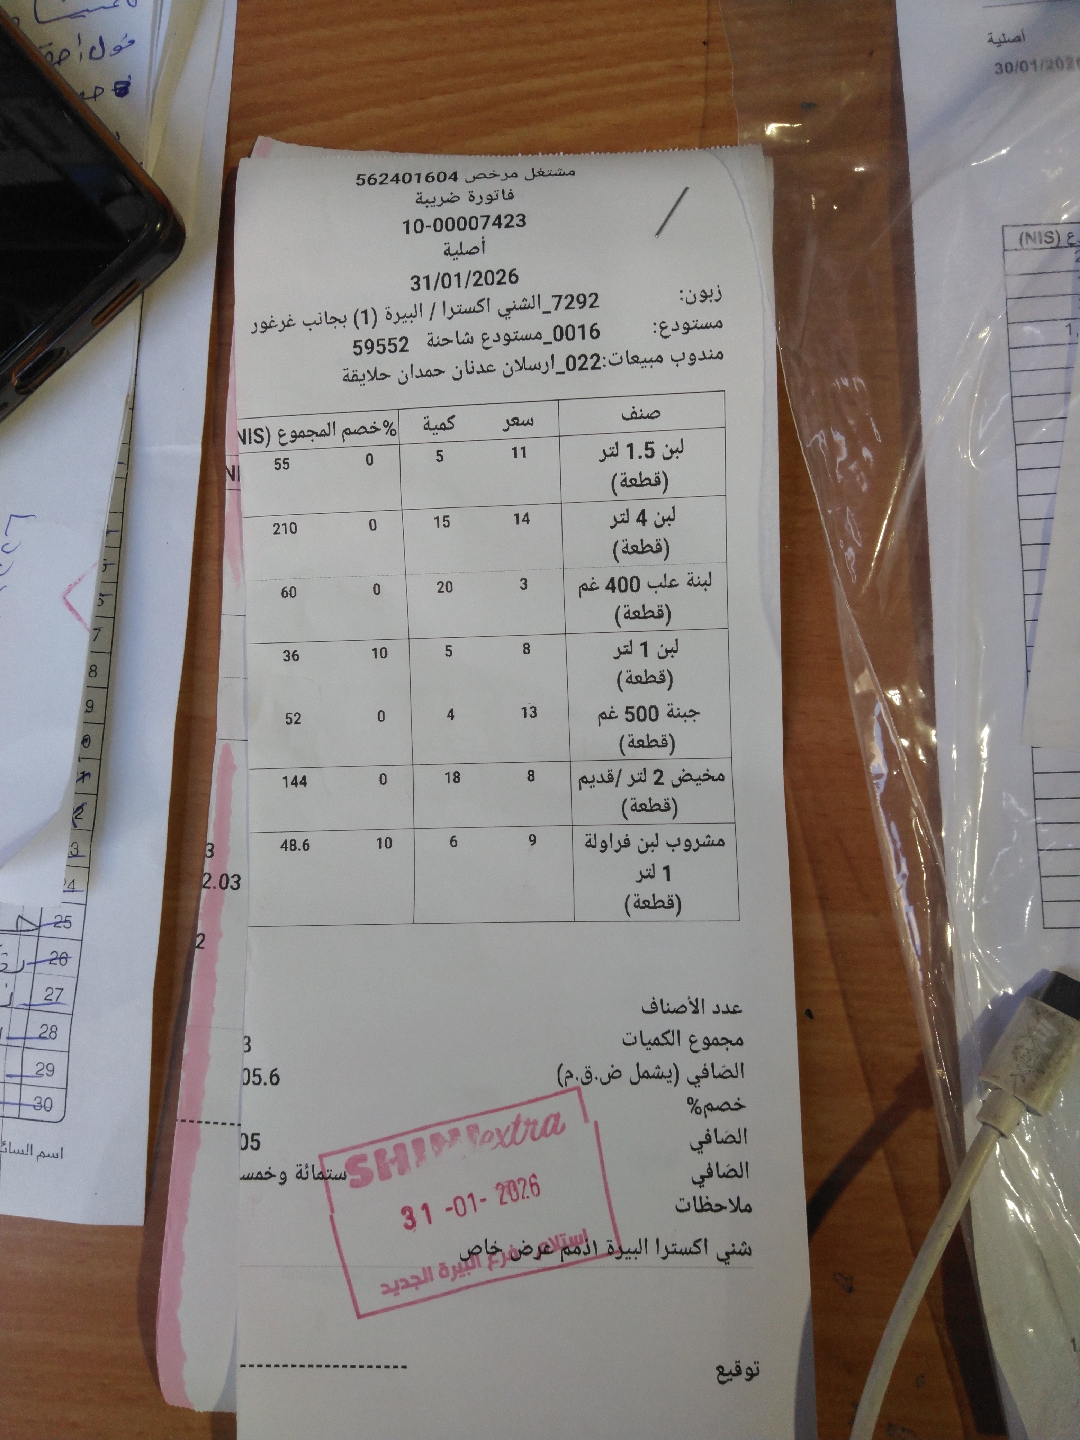 مشتغل مرخص 562401604
فاتورة ضريبة
10-00007423
أصلية
31/01/2026
زبون: 7292_الشني اكسترا / البيرة (1) بجانب غرغور
مستودع: 0016_مستودع شاحنة 59552
مندوب مبيعات:022_ارسلان عدنان حمدان حلايقة
صنف سعر كمية خصم% المجموع (NIS
لبن 1.5 لتر (قطعة) 11 5 0 55
لبن 4 لتر (قطعة) 14 15 0 210
لبنة علب 400 غم (قطعة) 3 20 0 60
لبن 1 لتر (قطعة) 8 5 10 36
جبنة 500 غم (قطعة) 13 4 0 52
مخيض 2 لتر /قديم (قطعة) 8 18 0 144
مشروب لبن فراولة 1 لتر (قطعة) 9 6 10 48.6
عدد الأصناف
مجموع الكميات 3
الصافي (يشمل ض.ق.م) 05.6
خصم%
الصافي 05
الصافي ستمائة وخمس
ملاحظات
شني اكسترا البيرة اذمم عرض خاص
SHINI extra
31 -01- 2026
استلام فرع البيرة الجديد
توقيع
أصلية
30/01/2026
ع (NIS)
3
2.03
2
5
7
8
9
25
26
27
28
29
30
اسم السائ